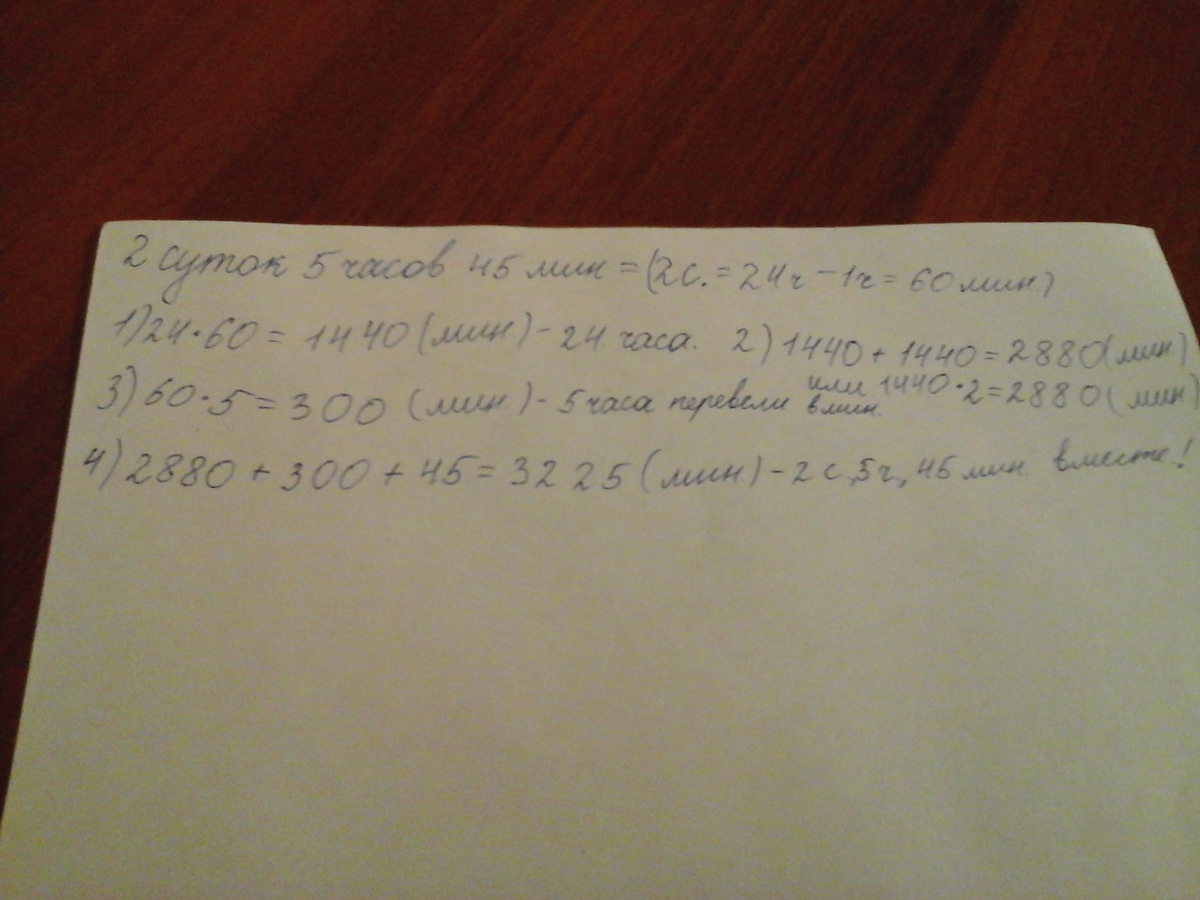 2 суток 5 часов 45 мин = (2с. = 24ч - 1ч = 60 мин.)
1) 24·60 = 1440 (мин) - 24 часа. 2) 1440 + 1440 = 2880 (мин)
или 1440·2 = 2880 (мин)
3) 60·5 = 300 (мин.) - 5 часа перевели в мин.
4) 2880 + 300 + 45 = 3225 (мин.) - 2 с, 5ч, 45 мин вместе!